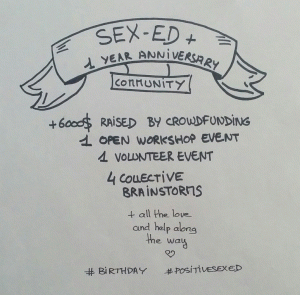 SEX-ED +
1 YEAR ANNIVERSARY
COMMUNITY
+6000$ RAISED BY CROWDFUNDING
1 OPEN WORKSHOP EVENT
1 VOLUNTEER EVENT
4 COLLECTIVE
BRAINSTORMS
+ all the love
and help along
the way
# BIRTHDAY # POSITIVESEXED